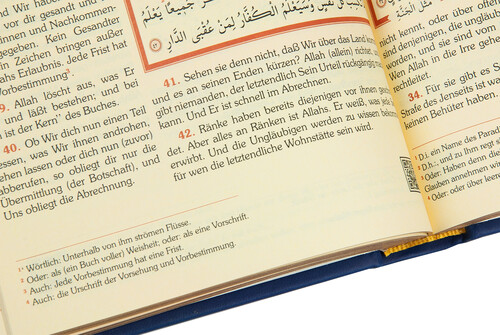 nd Wir haben
vor dir gesandt und
innen und Nachkommen-
egeben. Kein Gesandter
Zeichen bringen außer
ahs Erlaubnis. Jede Frist hat
Vorbestimmung³.
9. Allah löscht aus, was Er
und läßt bestehen; und bei
ist der Kern⁴ des Buches.
40. Ob Wir dich nun einen Teil
essen, was Wir ihnen androhen,
ehen lassen oder dich nun (zuvor)
abberufen, so obliegt dir nur die
Übermittlung (der Botschaft), und
Uns obliegt die Abrechnung.
جَمِيعًا يَعْلَمُ
نَفْسٍ وَسَيَعْلَمُ الْكُفَّارُ لِمَنْ عُقْبَى الدَّارِ
41. Sehen sie denn nicht, daß Wir über das Land
und es an seinen Enden kürzen? Allah (allein) richtet,
gibt niemanden, der letztlich Sein Urteil rückgängig
kann. Und Er ist schnell im Abrechnen.
42. Ränke haben bereits diejenigen vor ihnen
det. Aber alles an Ränken ist Allahs. Er weiß, was
erwirbt. Und die Ungläubigen werden zu wissen bekommen,
für wen die letztendliche Wohnstätte sein wird.
1* Wörtlich: Unterhalb von ihm strömen Flüsse.
2 Oder: als (ein Buch voller) Weisheit; oder: als eine Vorschrift.
3 Auch: Jede Vorbestimmung hat eine Frist.
4 Auch: die Urschrift der Vorsehung und Vorbestimmung.
nicht kennt, oder
nennt, oder über
denjenigen, die
worden; und sie sind vom
Wen Allah in die Irre gehen
rechtleitet.
34. Für sie gibt es
Strafe des Jenseits ist
keinen Behüter haben.
1 D.i. ein Name des
2 D.h.: und zu Ihm
3 Oder: Haben denn
Glauben annehmen
4 Oder: oder über